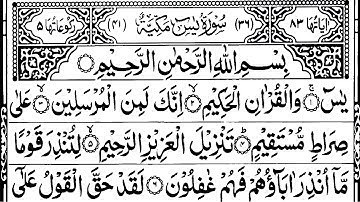 اٰیَاتُهَا ٨٣ (٣٦) سُوْرَةُ یٰسٓ مَكِّیَّةٌ (٤١) رُكُوْعَاتُهَا ٥
بِسْمِ اللّٰهِ الرَّحْمٰنِ الرَّحِیْمِ
یٰسٓ ۚ ١ وَالْقُرْاٰنِ الْحَكِیْمِ ۙ ٢ اِنَّكَ لَمِنَ الْمُرْسَلِیْنَ ۙ ٣ عَلٰی
صِرَاطٍ مُّسْتَقِیْمٍ ؕ ٤ تَنْزِیْلَ الْعَزِیْزِ الرَّحِیْمِ ۙ ٥ لِتُنْذِرَ قَوْمًا
مَّاۤ اُنْذِرَ اٰبَآؤُهُمْ فَهُمْ غٰفِلُوْنَ ٦ لَقَدْ حَقَّ الْقَوْلُ عَلٰۤی